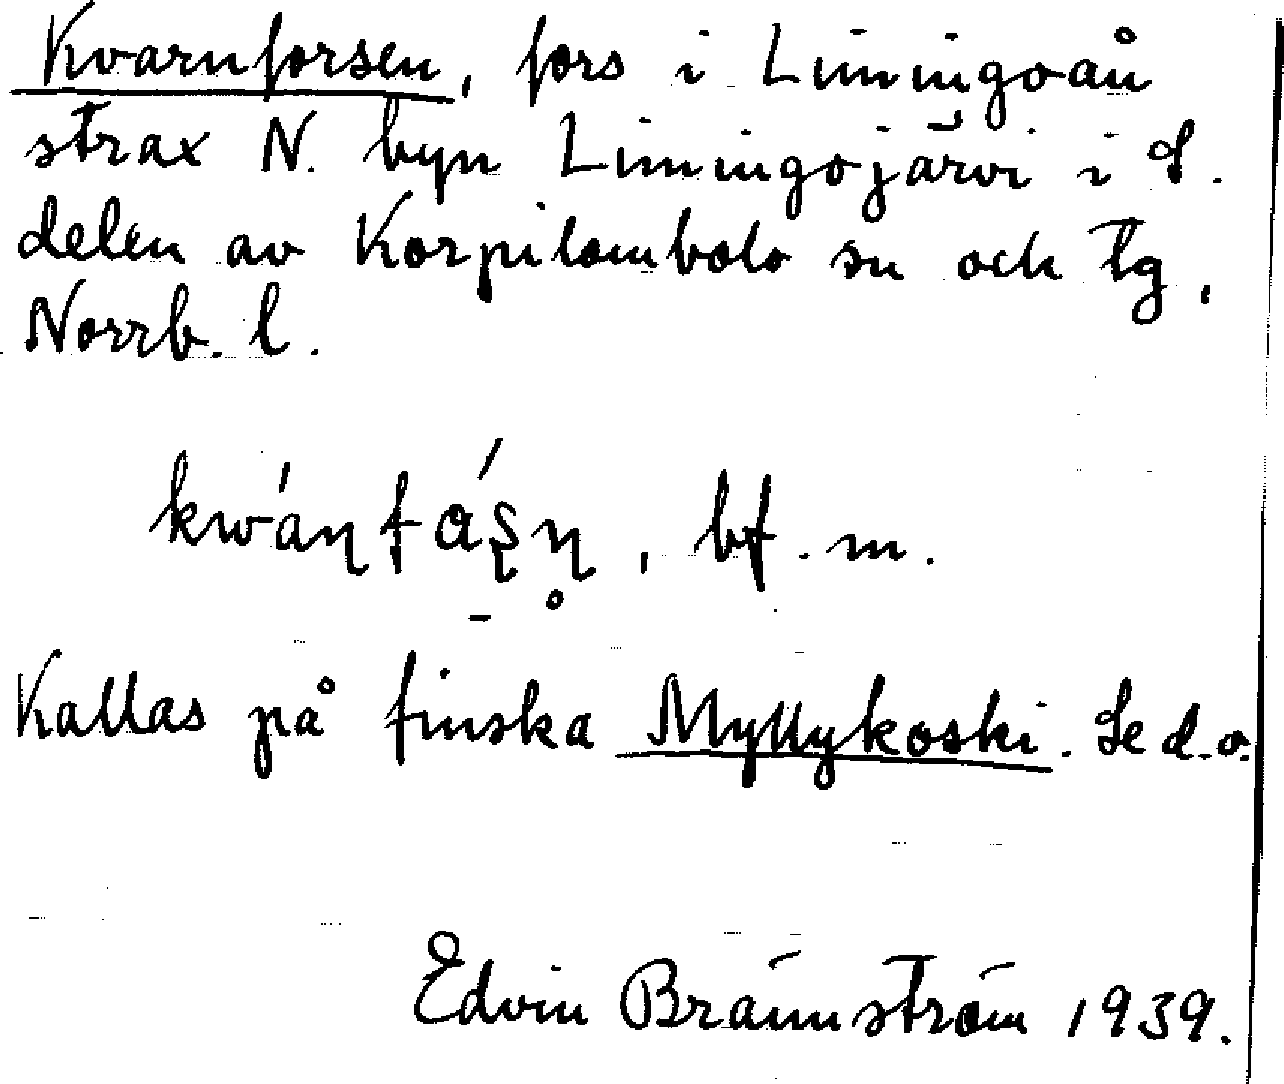 Kvarnforsen, fors i Liminingoån
strax N. byn Liminingojärvi i S.
delen av Korpilombolo sn och tg,
Norrb. l.
kwáɳfáʂɳ̥, bf. m.
Kallas på finska Myllykoski. Se d.o.
Edvin Brännström 1939.